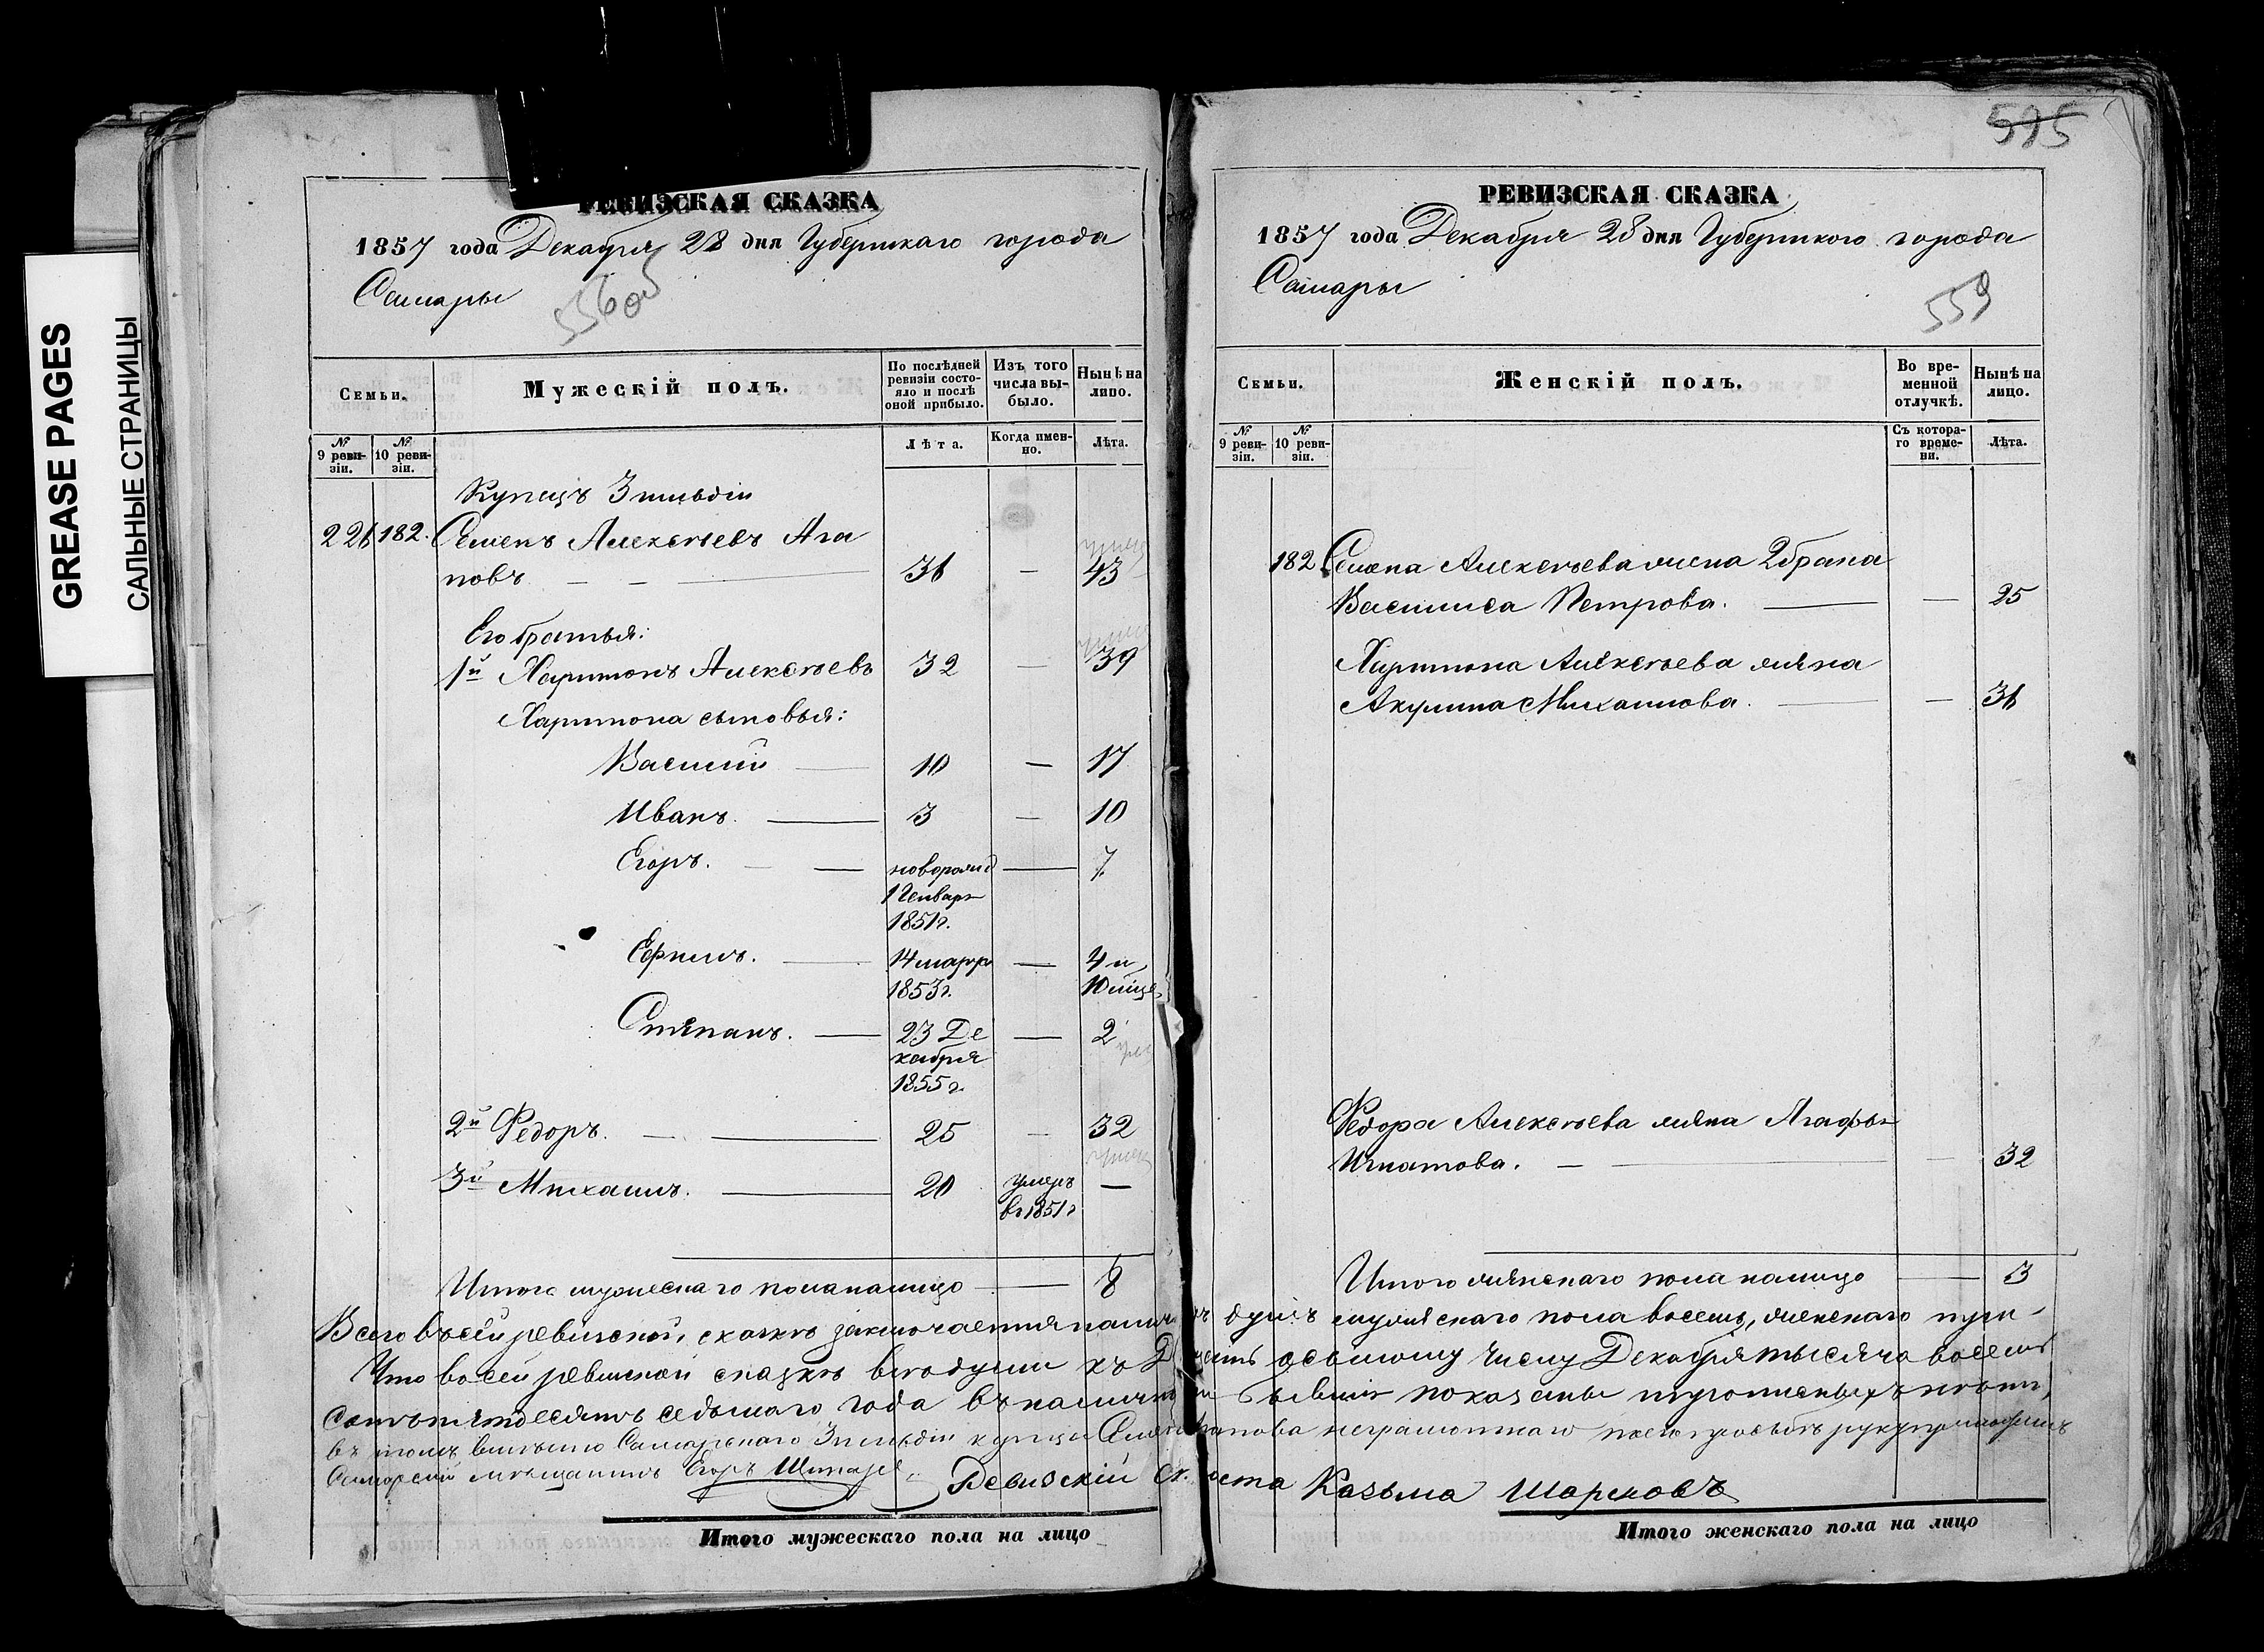 GREASE PAGES
САЛЬНЫЕ СТРАНИЦЫ
РЕВИЗСКАЯ СКАЗКА
1857 года Декабря 28 дня Губернскаго города
Самары
556об
Семьи.
Мужескій полъ.
По послѣдней ревизіи состояло и послѣ оной прибыло.
Изъ того числа выбыло.
Нынѣ на лицо.
№ 9 ревизіи.
№ 10 ревизіи.
Лѣта.
Когда именно.
Лѣта.
Купецъ 3 гильдіи
226 182. Семенъ Алексѣевъ Ага
повъ — — 36 — 43
Его братья:
1й Харитонъ Алексѣевъ 32 — 39
Харитона сыновья:
Василій — 10 — 17
Иванъ. — 3 — 10
Егоръ. — — новорожд — 7
1 Генваря
1851 г.
Ефимъ. — 14 марта — 4 и
1853 г. 10 мѣце
Степанъ. — 23 Де — 2
кабря
1855 г.
2й Федоръ. — — 25 — 32
3й Михаилъ. — 20 умеръ —
въ 1851 г
Итого мужескаго пола налицо — 8
РЕВИЗСКАЯ СКАЗКА
595
1857 года Декабря 28 дня Губернского города
Самары
559
Семьи.
Женскій полъ.
Во временной отлучкѣ.
Нынѣ на лицо.
№ 9 ревизіи.
№ 10 ревизіи.
Съ котораго времени.
Лѣта.
182 Семена Алексѣева жена 2 брака
Василиса Петрова. — — 25
Харитона Алексѣева жена
Акулина Михаилова. — — 36
Федора Алексѣева жена Агафья
Игнатова. — — — 32
Итого женскаго пола налицо — 3
Всего въ сей ревизской сказкѣ заключается налич душъ мужескаго пола восемь, женскаго три —
Что во сей ревизской сказкѣ все души къ осьмому числу Декабря тысяча восемь
сотъ пятдесятъ седьмаго года въ наличности бывшіе показаны и прописныхъ нѣтъ,
въ томъ вмѣсто Самарскаго 3 гильдіи купца Семена Агапова неграмотнаго по его просьбѣ руку приложилъ
Самарскій мѣщанинъ Егоръ
Ревизскій Староста Казьма Шариковъ
Итого мужескаго пола на лицо
Итого женскаго пола на лицо